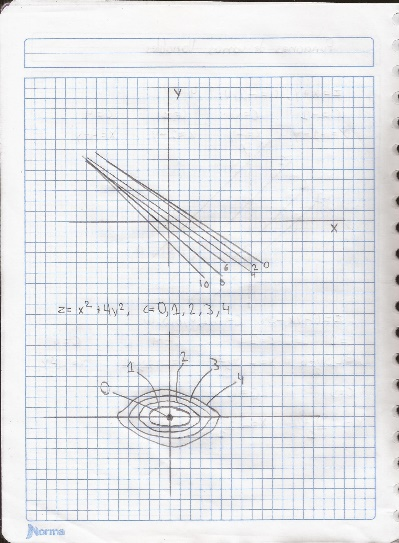 Y
X
0
2
4
6
8
10
z = x² + 4y², c = 0, 1, 2, 3, 4
0 1 2 3 4
Norma